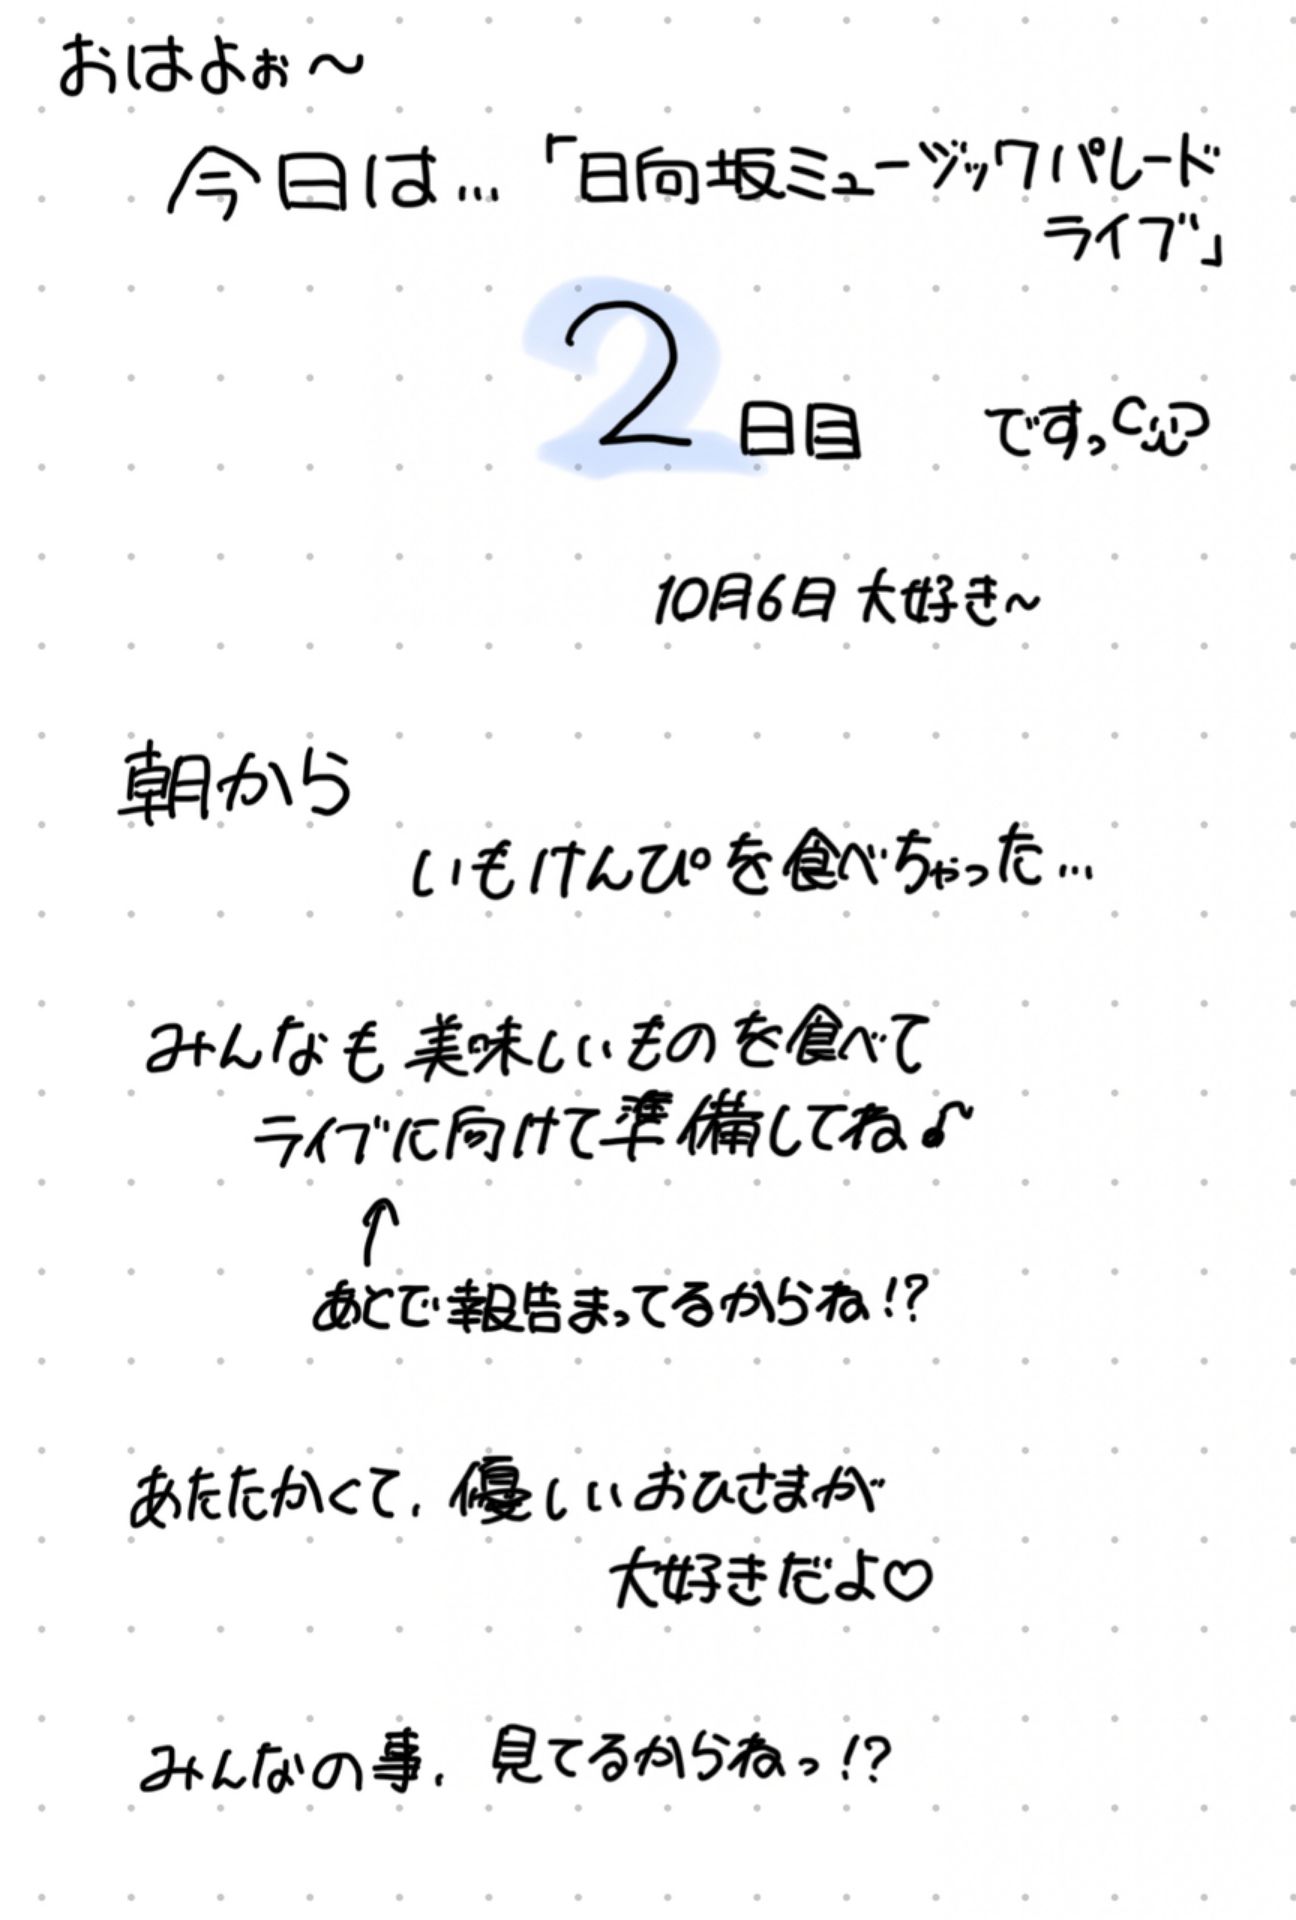 おはよぉ〜
今日は…「日向坂ミュージックパレード
ライブ」
2日目 ですっ
10月6日 大好き〜
朝から
いもけんぴを食べちゃった…
みんなも美味しいものを食べて
ライブに向けて準備してね♪
↑
あとで報告まってるからね!?
あたたかくて、優しいおひさまが
大好きだよ♡
みんなの事、見てるからねっ!?